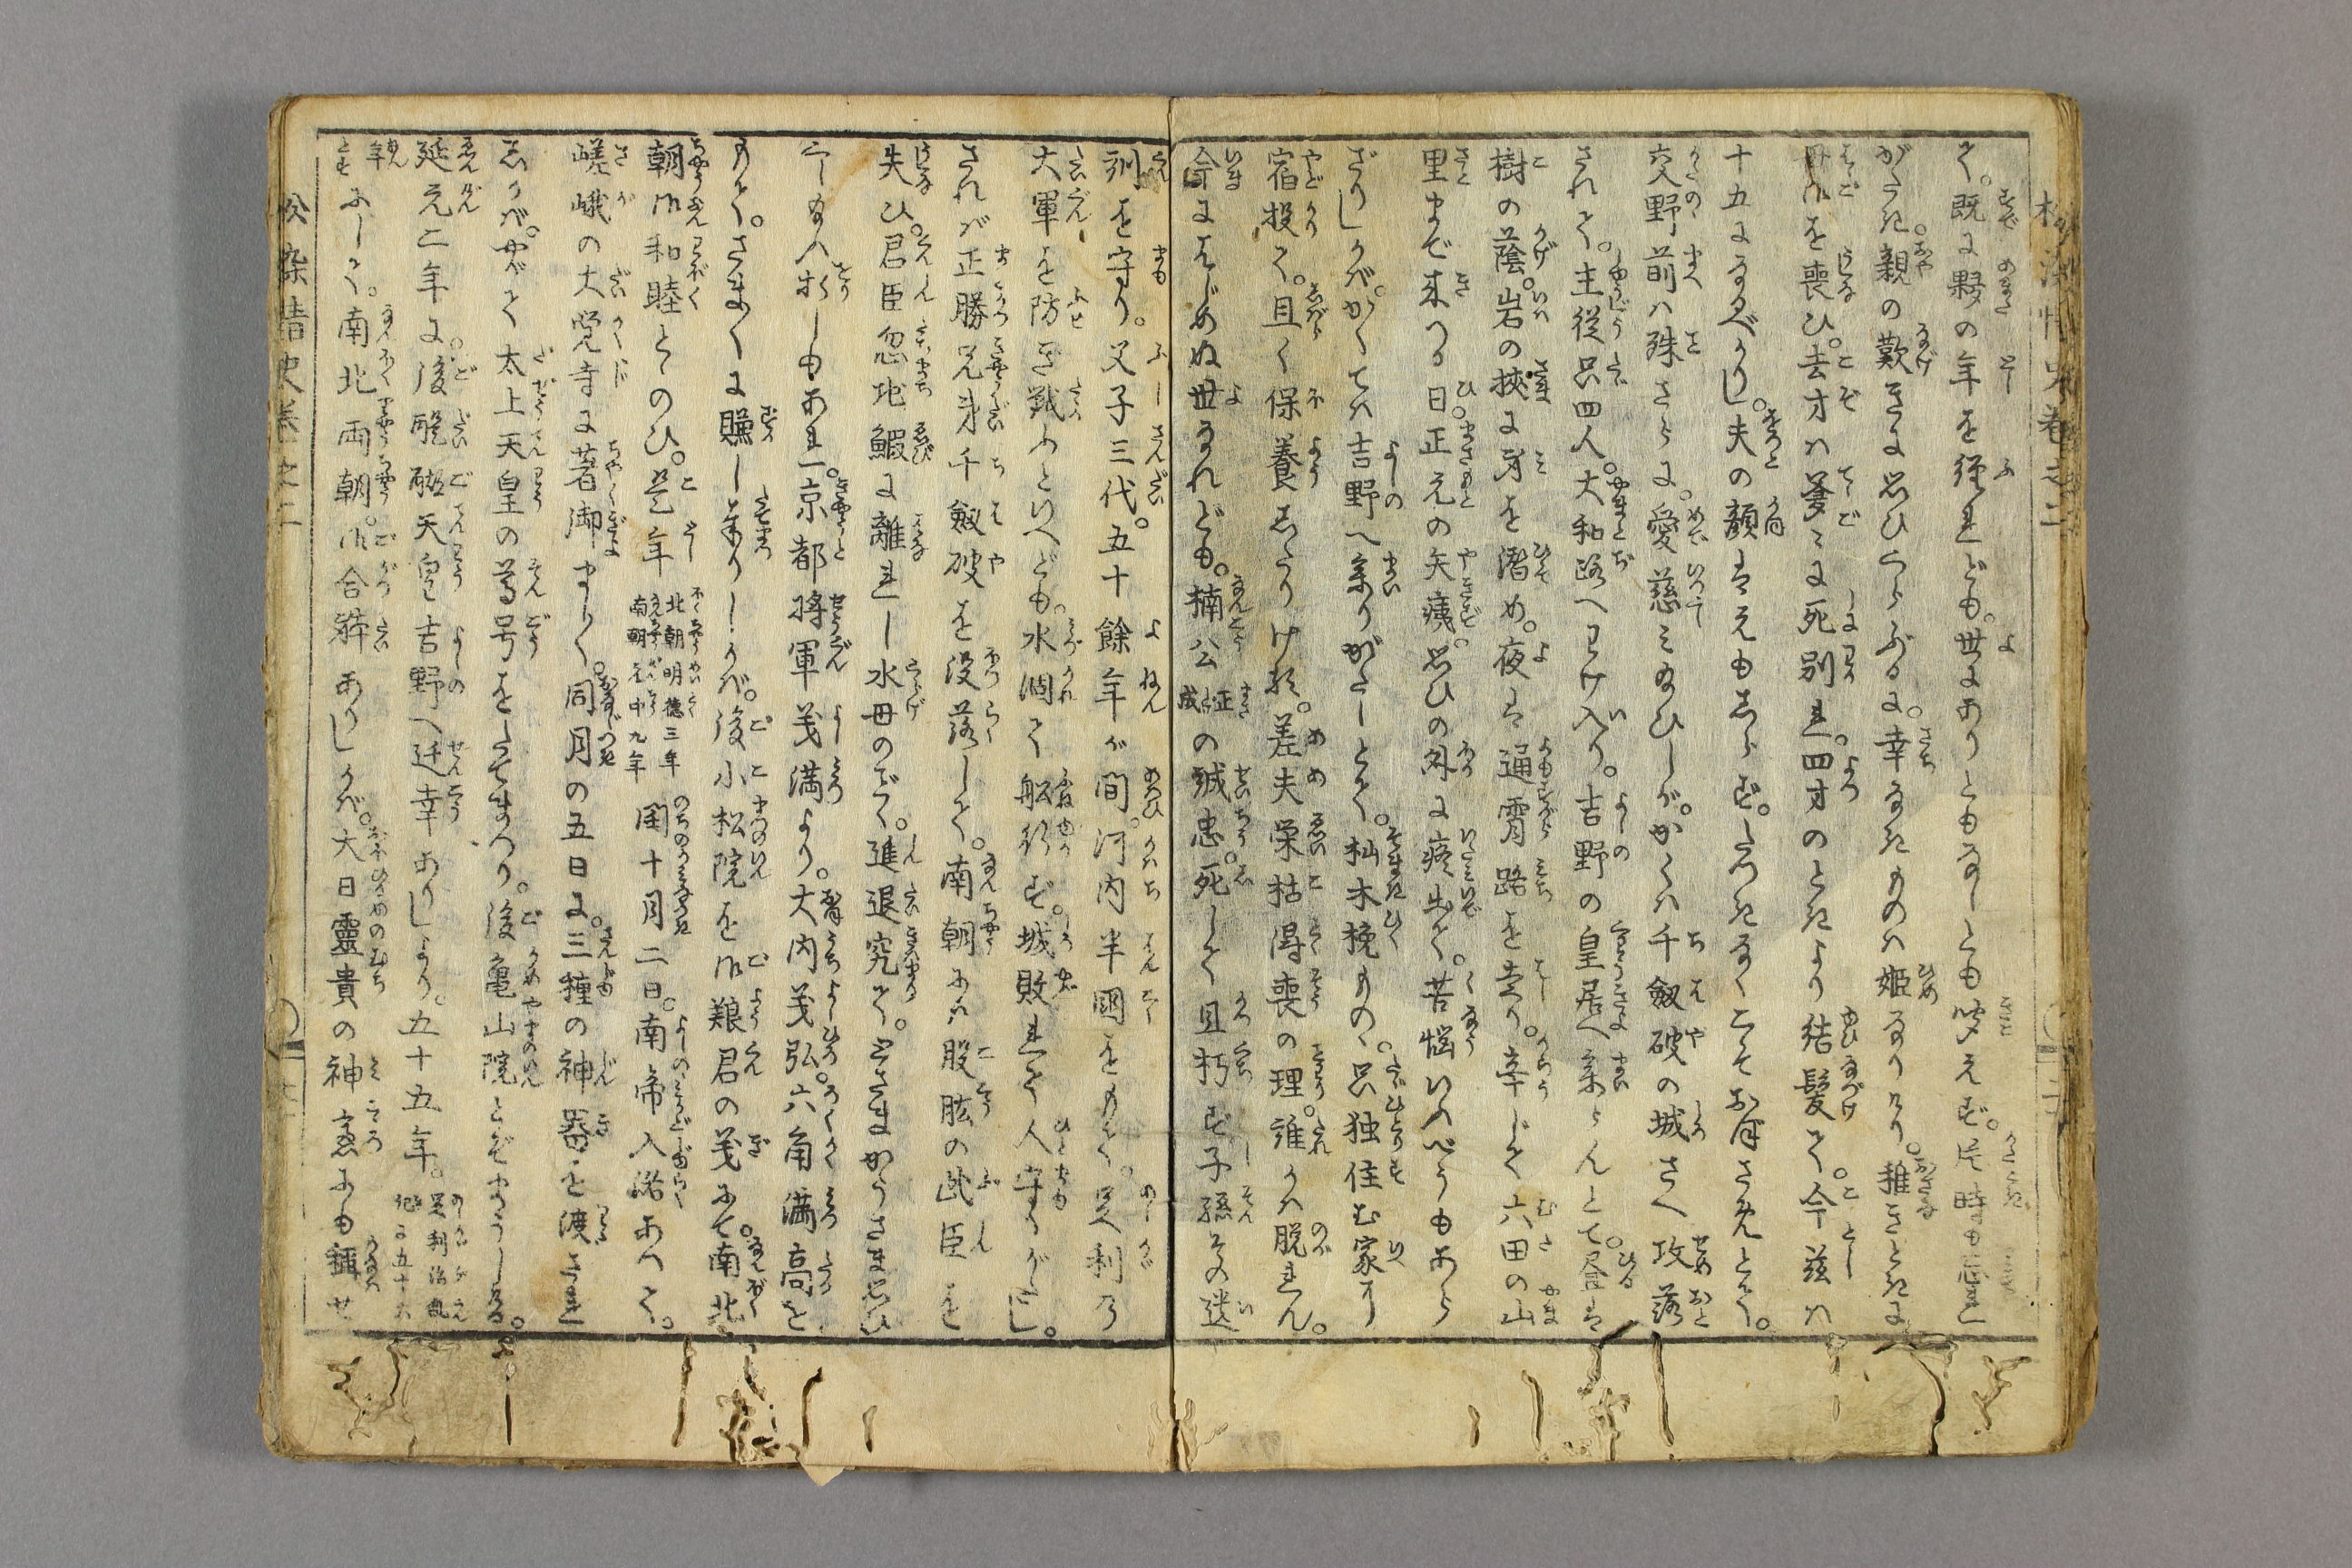 て。既に夥の年を經れども。世にありともなしとも聞えず。片時も忘れ
がたき。親の歎きに思ひくらぶるに。幸なきものは姫なりけり。稚きときに
母御を喪ひ。去才は爹々に死別れ。四才のときより結髪て。今茲は
十五になるべかりし。夫の顔はそもしらず。たつきなくこそおはさめとて。
交野前は殊さらに。愛慈み給ひしが。かくは千劔破の城さへ攻落
されて。主従只四人。大和路へわけ入り。吉野の皇居へ参らんとて。昼は
樹の蔭。岩の挾に身を潜め。夜は通霄路を走り。辛じて六田の山
里まで來つる日。正元の矢痍。思ひの外に疼出て。苦悩いふべうもあら
ざりしかば。かくては吉野へ参りがたしとて。杣木挽もの。只独住む家に
宿投て。且く保養したりける。差夫栄枯得喪の理。誰かは脱れん。
今にはじめぬ世なれども。楠公正成の誠忠。死して且朽ず子孫その遺
訓を守り。父子三代。五十餘年が間。河内半國をもて。足利の
大軍を防ぎ戰ふといへども。水涸て船行ず。城敗れて人守りがたし。
されば正勝兄弟千劔破を没落して。南朝には股肱の武臣を
失ひ。君臣忽地鰕に離れし水母のごく。進退究て。とさまかうさま思ひ
くし給ふ折しもあれ。京都將軍義満より。大内義弘。六角満高を
もて。さまざまに賺し奉りしかば。後小松院を御艱君の義にて。南北
朝御和睦とゝのひ。是年 北朝明徳三年 南朝元中九年 閏十月二日。南帝入洛あつて。
嵯峨の大覚寺に著御まし〳〵。同月の五日に。三種の神器を渡され
しかば。やがて太上天皇の尊号をたてまつり。後亀山院とぞまうしける。
延元二年に。後醍醐天皇吉野へ迁幸ありしより。五十五年。足利治乱記に五十六
年とす にして。南北両朝。御合躰ありしかば。大日靈貴の神慮にも稱せ